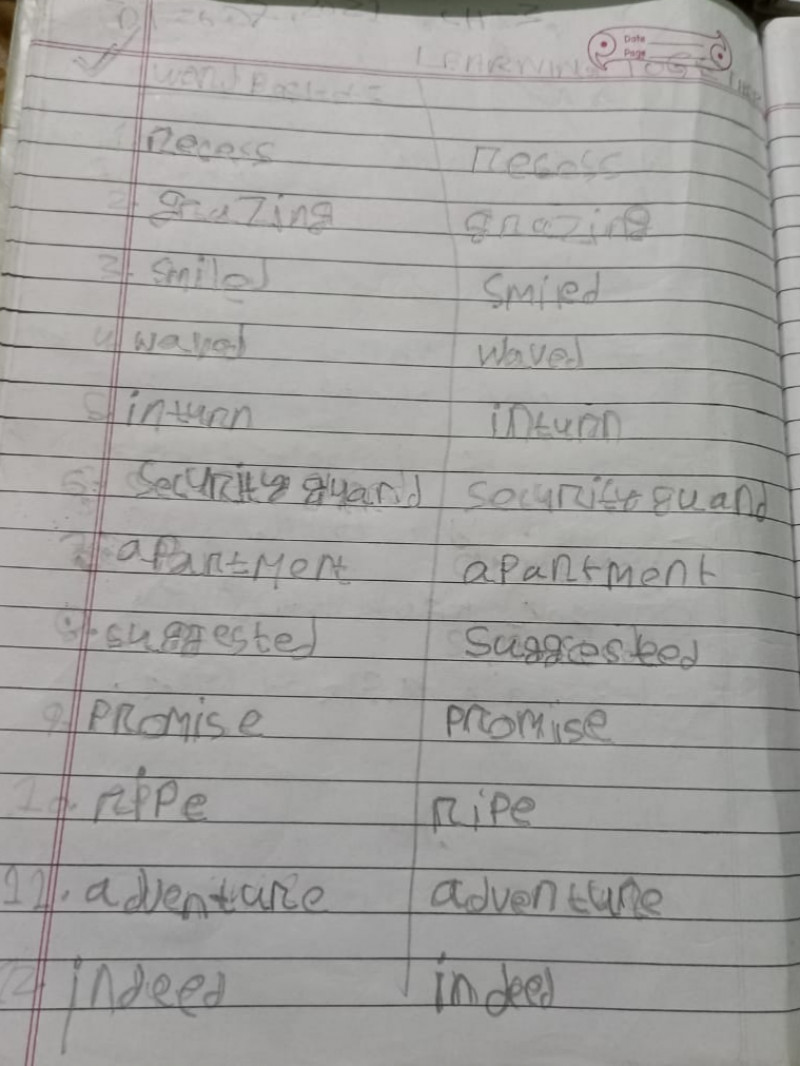 Date
Page
LEARNING TOGETHER
Word Pocket =
1. Recess Recess
2. grazing grazing
3. smiled smiled
4. waved waved
5. inturn inturn
6. Security guard security guard
7. apartment apartment
8. suggested suggested
9. promise promise
10. rippe ripe
11. adventure adventure
12. indeed indeed